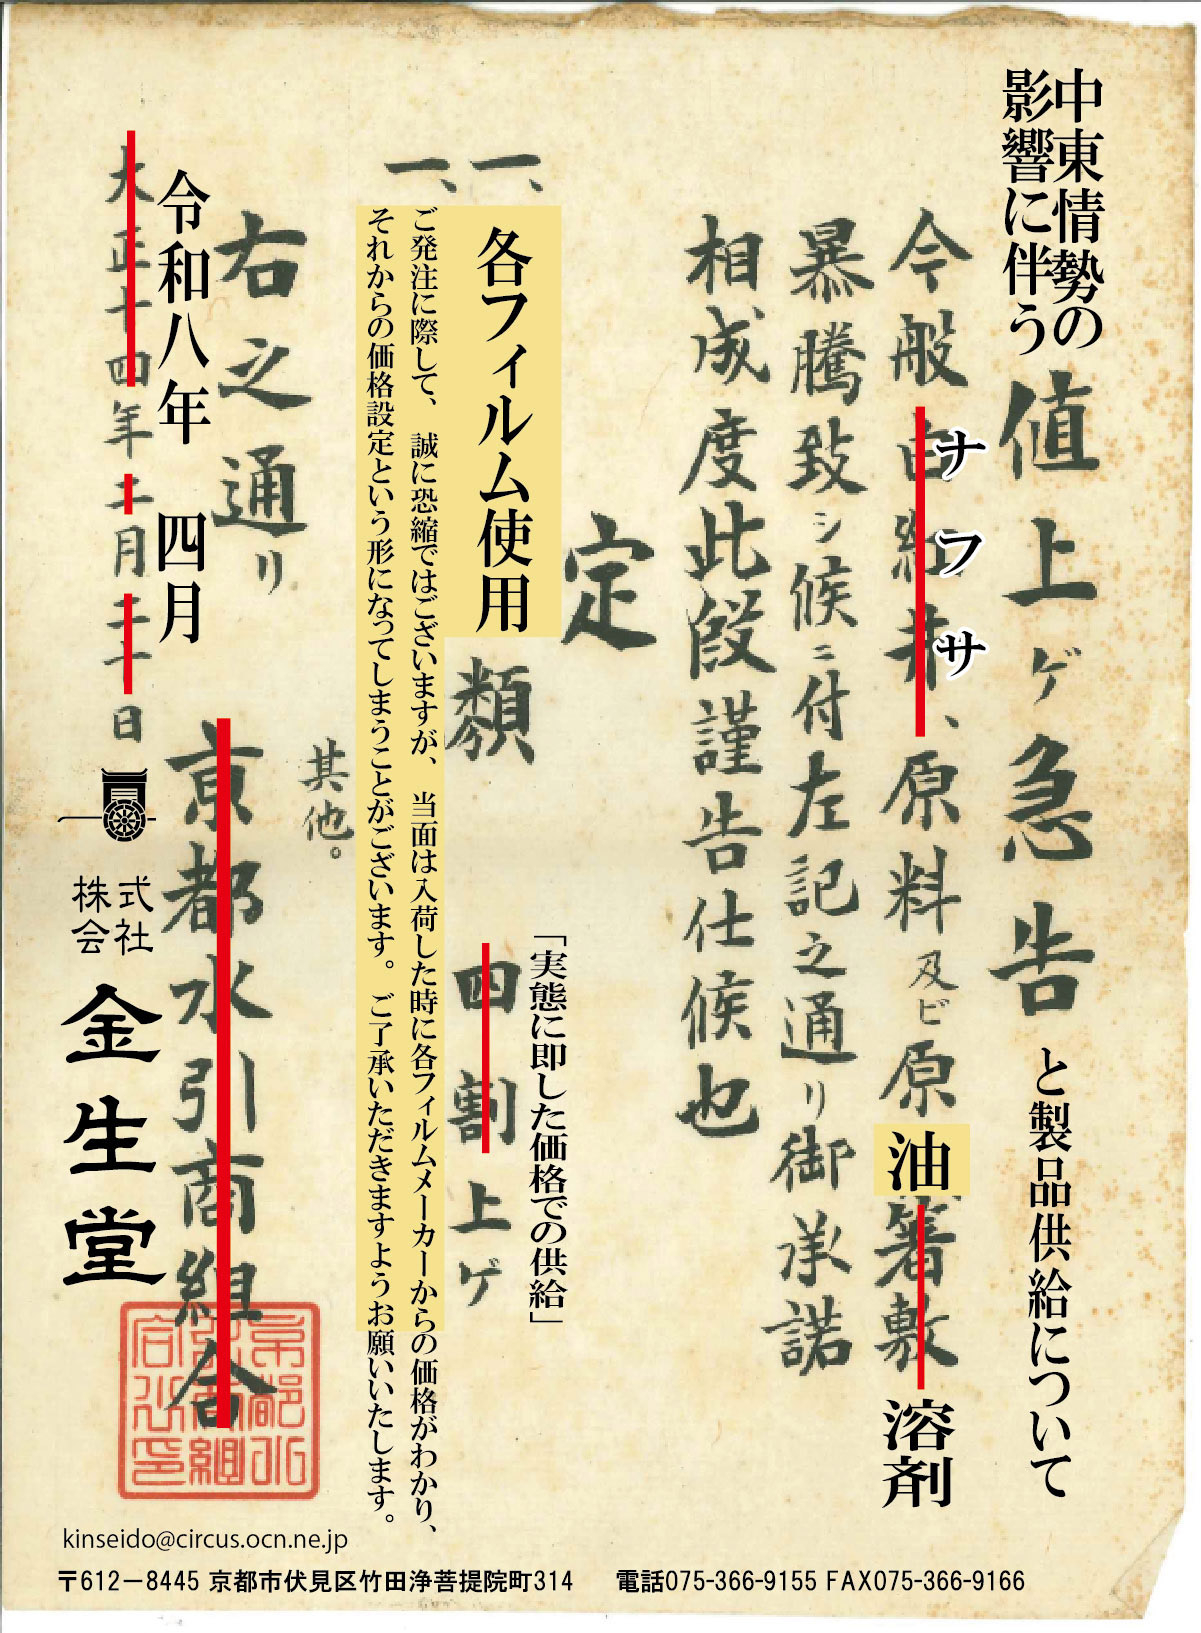 中東情勢の
影響に伴う
値上ゲ急告
と製品供給について
今般白紅赤、原料及ビ原油箸敷
ナフサ
溶剤
暴騰致シ候ニ付左記之通リ御承諾
相成度此段謹告仕候也
定
一、各フィルム使用類 四割上ゲ
「実態に即した価格での供給」
一、
ご発注に際して、誠に恐縮ではございますが、当面は入荷した時に各フィルムメーカーからの価格がわかり、
それからの価格設定という形になってしまうことがございます。ご了承いただきますようお願いいたします。
其他。
右之通リ
令和八年 四月
大正十四年二月二十日
京都水引商組合
株式会社 金生堂
kinseido@circus.ocn.ne.jp
〒612－8445 京都市伏見区竹田浄菩提院町314 電話075-366-9155 FAX075-366-9166